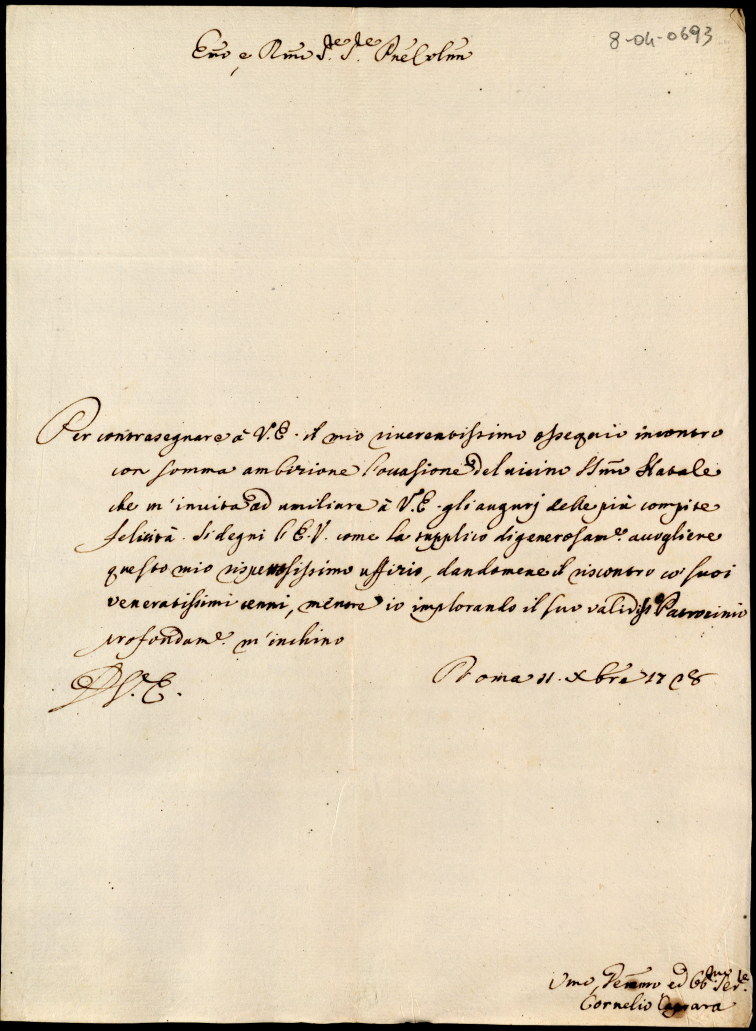 8-04-0693
Emo, e Rmo Sre Sre Pne Colmo
Per contrasegnare à V.E. il mio riverentissimo ossequio incontro
con somma ambizione l'occasione del vicino Smo Natale
che m'invita ad umiliare à V.E. gli augurj delle più compite
felicità. Si degni l'E.V. come la supplico di generosame. accogliere
questo mio rispettosissimo uffizio, dandomene il riscontro co' suoi
veneratissimi cenni, mentre io implorando il suo validissº Patrocinio
profondame. m'inchino
D V. E.
Roma 11. Xbre 17
Umo, Devmmo ed Obbmo Serre
Cornelio Caprara